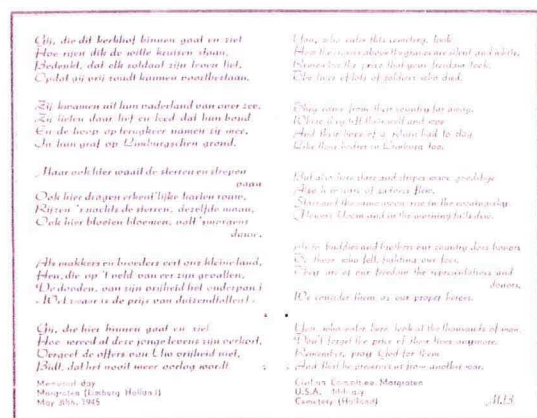 Gij, die dit kerkhof binnen gaat en ziet
Hoe rijen dik de witte kruisen staan,
Bedenkt, dat elk soldaat zijn leven liet,
Opdat gij vrij zoudt kunnen voortbestaan.
Zij kwamen uit hun vaderland van over zee.
Zij lieten daar lief en leed dat hun bond
En de hoop op terugkeer namen zij mee,
In hun graf op Limburgschen grond.
Maar ook hier waait de sterren en strepen
vaan
Ook hier dragen erkent'lijke harten rouw,
Rijzen 's nachts de sterren, dezelfde maan,
Ook hier bloeien bloemen, valt 's morgens
dauw.
Als makkers en broeders eert ons kleine land,
Hen, die op 't veld van eer zijn gevallen,
De dooden, van zijn vrijheid het onderpand
Wel zwaar is de prijs van duizendtallen!
Gij, die hier binnen gaat en ziet
Hoe wreed al deze jonge levens zijn verkort,
Vergeet de offers van Uw vrijheid niet,
Bidt, dat het nooit meer oorlog wordt
Memorial day
Margraten (Limburg Holland)
May 30th, 1945
You, who enter this cemetery, look
How the signs above the graves are silent and white,
Remember the price that your freedom took,
The lives of lots of soldiers who died.
They came from their country far away,
Where they left their
And their hope of a return had to stay
Like their bodies in Limburg too.
But also here stars and stripes wave
Also here
Stars and the same moon rise in the
Flowers bloom and in the morning falls dew.
As buddies and brothers our country does honors
To those who fell, fighting our foes.
They are of our freedom the representations and
donors,
We consider them as our proper heroes.
You, who enter here, look at the thousands of men,
Don't forget the price of their lives anymore.
Remember, pray God for them
And that he preserves us from another war.
Civilian Committee, Margraten
U.S.A. Military
Cemetery (Holland)